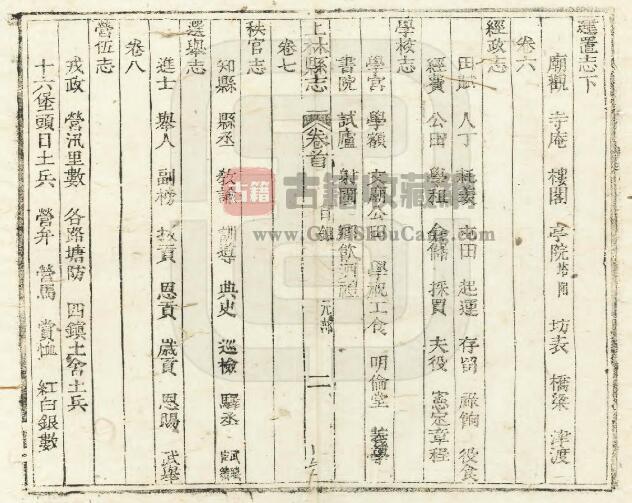 建置志下
廟觀 寺庵 樓閣 亭院 坊表 橋梁 津渡
卷六
經政志
田賦 人丁 耗羨 屯田 起運 存留 祿餉 役食
經費 公田 學租 倉儲 採買 夫役 憲定章程
學校志
學宮 學額 文廟公田 學祝工食 明倫堂 義學
書院 試廬 射圃 鄉飲酒禮
上林縣志 卷首 目錄 二
卷七
秩官志
知縣 縣丞 教諭 訓導 典史 巡檢 驛丞
選舉志
進士 舉人 副榜 拔貢 恩貢 歲貢 恩賜 武舉
卷八
營伍志
戎政 營汛里數 各路塘防 四鎮土舍土兵
十六堡頭目土兵 營弁 營馬 賞恤 紅白銀數
古籍 古籍收藏網
www.GujiShouCang.com